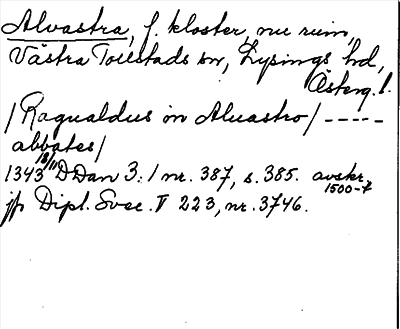 Alvastra, f. kloster, nu ruin,
Västra Tollstads sn, Lysings hd,
Österg. l.
/Ragualdus in Aluastro/ -----
abbates/
1343 18/11 DDan 3:1 nr. 387, s. 385. avskr. 1500-t
jfr Dipl. Svec. V 223, nr. 3746.